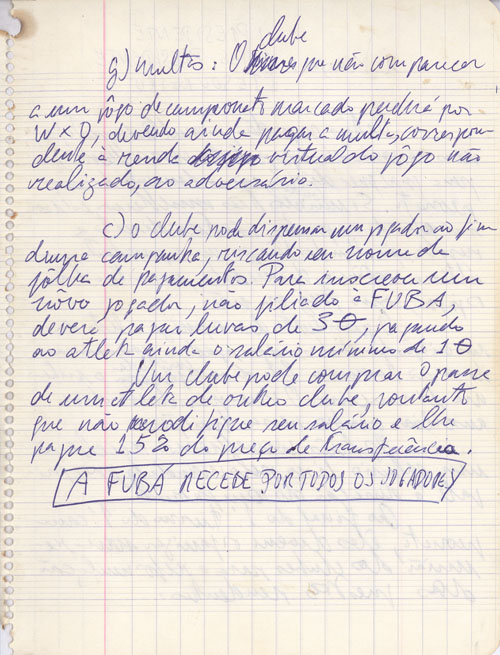 clube
g) multas: O que não comparecer
a um jôgo de campeonato marcado perderá por
W x O, devendo ainda pagar a multa, correspon-
dente à renda virtual do jôgo não
realizado, ao adversário.
c) O clube pode dispensar um jogador ao fim
duma campanha, riscando seu nome da
fôlha de pagamentos. Para inscrever um
nôvo jogador, não filiado à FUBA,
deverá pagar luvas de 3 Θ, pagando
ao atleta ainda o salário mínimo de 1 Θ
Um clube pode comprar o passe
de um atleta de outro clube, contanto
que não modifique seu salário e lhe
pague 15% do preço da transferência.
A FUBA RECEBE POR TODOS OS JOGADORES